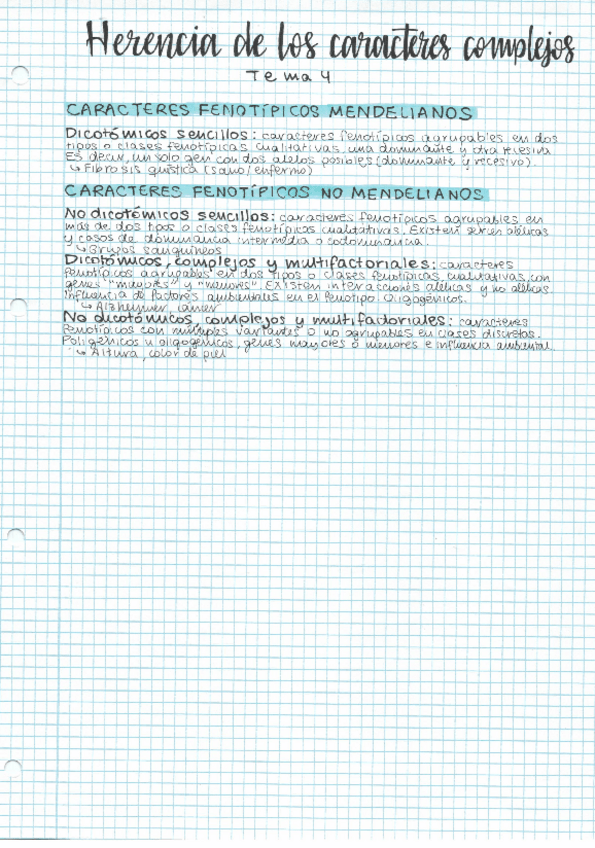 Herencia de los caracteres complejos
Tema 4
CARACTERES FENOTÍPICOS MENDELIANOS
Dicotómicos sencillos: caracteres fenotípicos agrupables en dos
tipos o clases fenotípicas cualitativas, una dominante y otra recesiva
Es decir, un solo gen con dos alelos posibles (dominante y recesivo)
↳ Fibrosis quística (sano/enfermo)
CARACTERES FENOTÍPICOS NO MENDELIANOS
No dicotómicos sencillos: caracteres fenotípicos agrupables en
más de dos tipos o clases fenotípicas cualitativas. Existen series alélicas
y casos de dominancia intermedia o codominancia.
↳ Grupos sanguíneos
Dicotómicos, complejos y multifactoriales: caracteres
fenotípicos agrupables en dos tipos o clases fenotípicas cualitativas, con
genes "mayores" y "menores". Existen interacciones alélicas y no alélicas
Influencia de factores ambientales en el fenotipo Oligogénicos.
↳ Alzheimer, cáncer
No dicotómicos, complejos y multifactoriales: caracteres
fenotípicos con múltiples variantes o no agrupables en clases discretas.
Poligénicos u oligogénicos, genes mayores o menores e influencia ambiental.
↳ Altura, color de piel